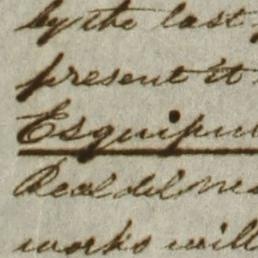 by the last
present it
Esquipu
Real del Mo
works will